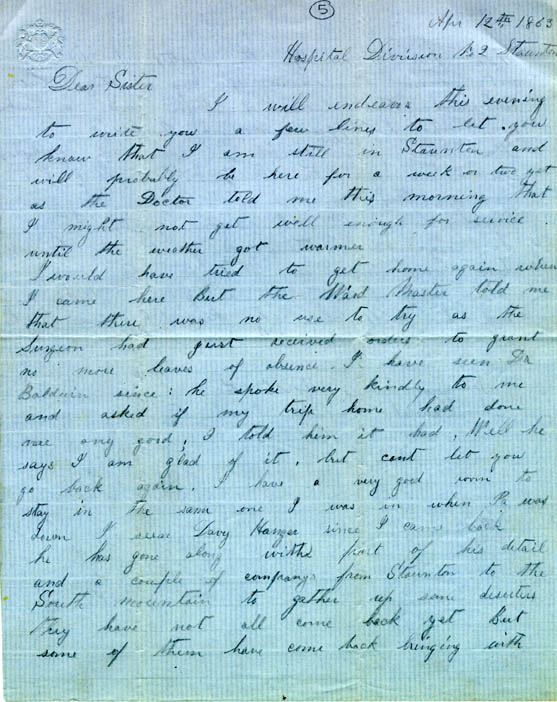 5
Apr 12th, 1863
Hospital Division No 2 Staunton
Dear Sister
I will endeavor this evening
to write you a few lines to let you
know that I am still in Staunton and
will probably be here for a week or two yet
as the Doctor told me this morning that
I might not get well enough for service
until the weather got warmer
I would have tried to get home again when
I came here But the Ward Master told me
that there was no use to try as the
Surgeon had just received orders to grant
no more leaves of absence. I have seen Dr
Baldwin since: he spoke very kindly to me
and asked if my trip home had done
me any good, I told him it had, Well he
says I am glad of it, but cant let you
go back again. I have a very good room to
stay in the same one I was in when Pa was
down I seen Davy Hanger since I came back
he has gone along with part of his detail
and a couple of companys from Staunton to the
South mountain to gather up some deserters
they have not all come back yet But
some of them have come back bringing with